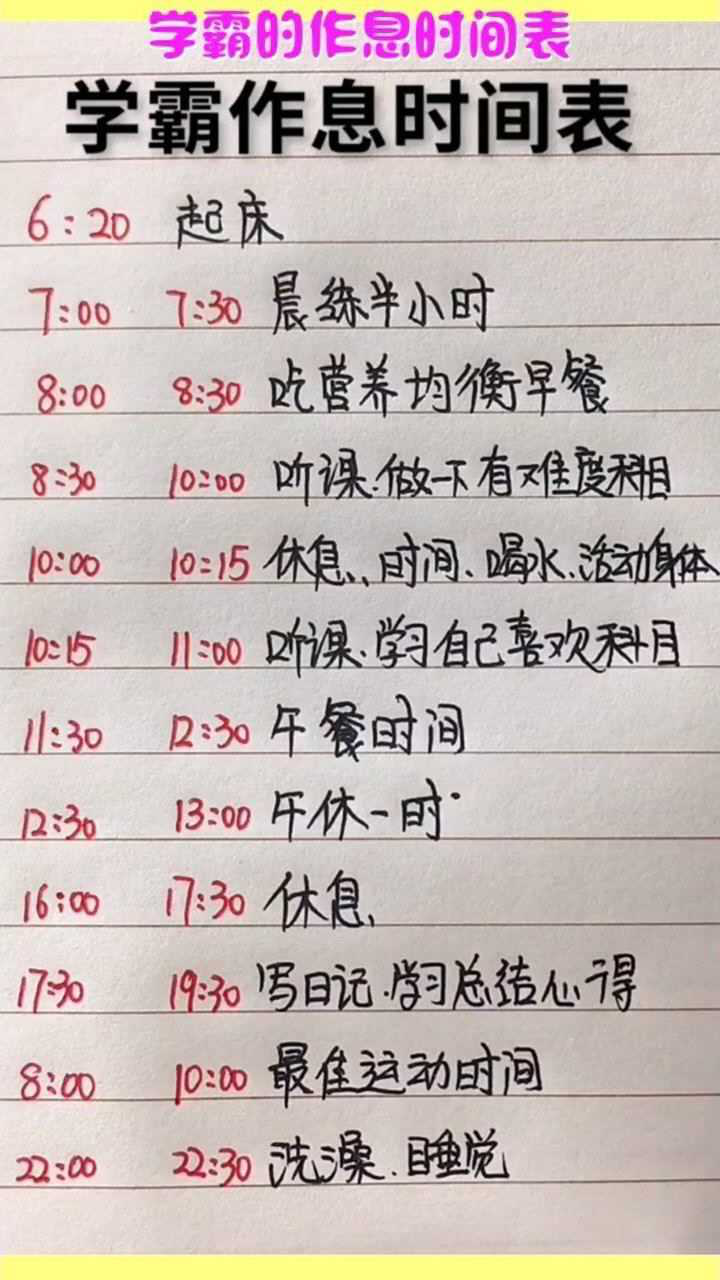 学霸的作息时间表
学霸作息时间表
6:20 起床
7:00 7:30 晨练半小时
8:00 8:30 吃营养均衡早餐
8:30 10:00 听课.做一下有难度科目
10:00 10:15 休息、、时间、喝水、活动身体
10:15 11:00 听课.学习自己喜欢科目
11:30 12:30 午餐时间
12:30 13:00 午休一时
16:00 17:30 休息、
17:30 19:30 写日记.学习总结心得
8:00 10:00 最佳运动时间
22:00 22:30 洗澡.睡觉